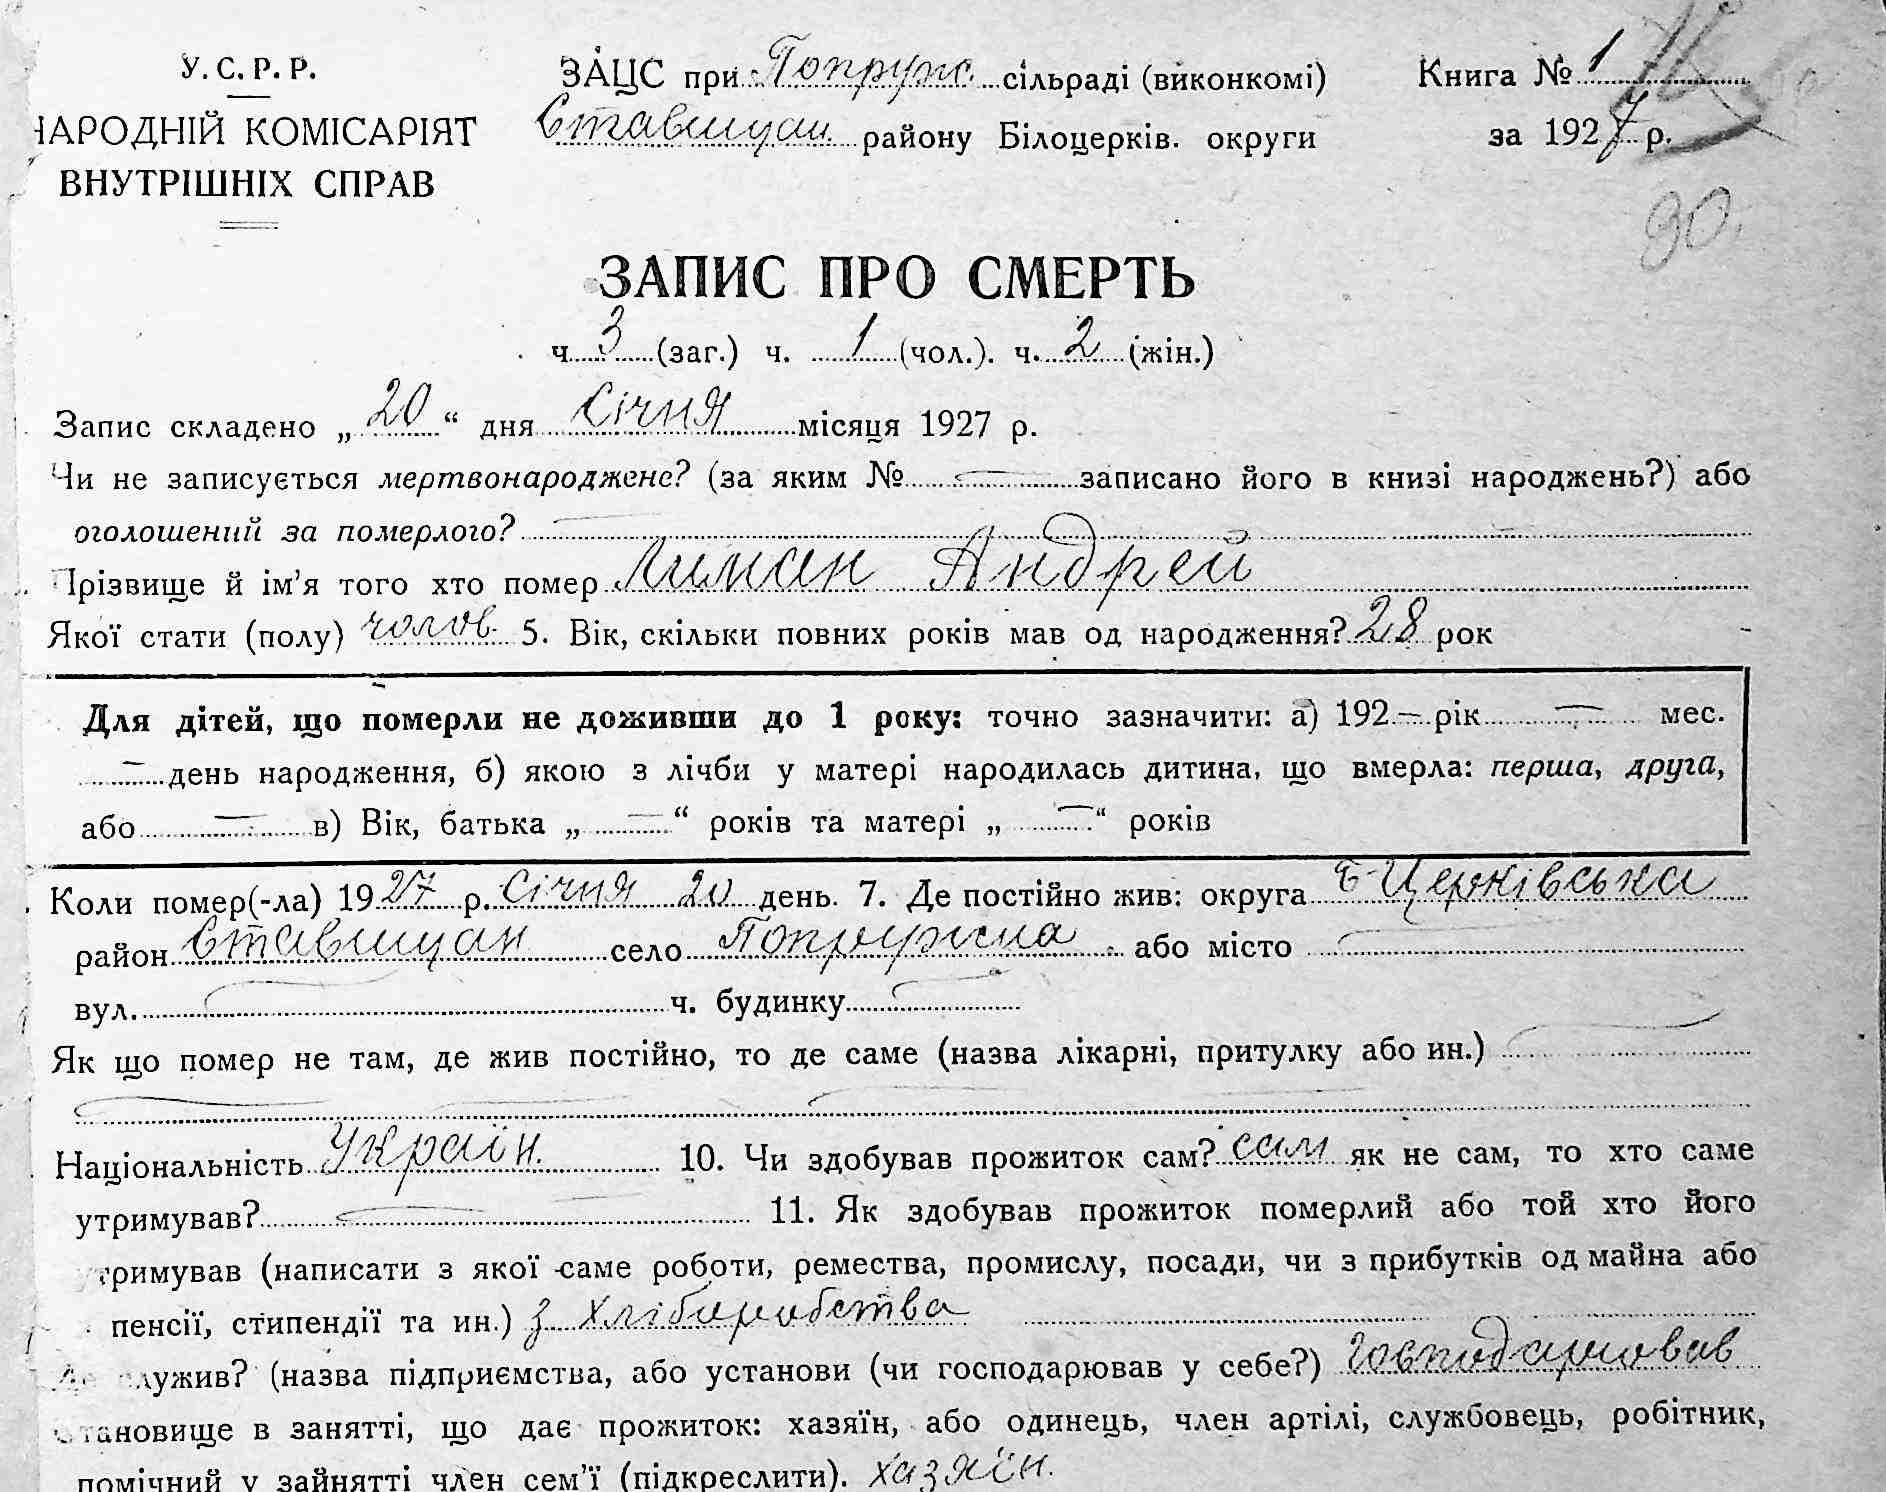 У. С. Р. Р.
НАРОДНІЙ КОМІСАРІЯТ
ВНУТРІШНІХ СПРАВ
ЗАЦС при Попруж. сільраді (виконкомі)
Ставищан. району Білоцерків. округи
Книга № 1
за 1927 р.
90.
ЗАПИС ПРО СМЕРТЬ
ч. 3 (заг.) ч. 1 (чол.). ч. 2 (жін.)
Запис складено „ 20 “ дня січня місяця 1927 р.
Чи не записується мертвонароджене? (за яким № — записано його в книзі народжень?) або
оголошений за померлого? —
Прізвище й ім’я того хто помер Лиман Андрей
Якої стати (полу) чолов. 5. Вік, скільки повних років мав од народження? 28 рок
Для дітей, що померли не доживши до 1 року: точно зазначити: а) 192 — рік — мес.
— день народження, б) якою з лічби у матері народилась дитина, що вмерла: перша, друга,
або — в) Вік, батька „ — “ років та матері „ — “ років
Коли помер(-ла) 1927 р. січня 20 день. 7. Де постійно жив: округа Б-Церківська
район Ставищан село Попружна або місто —
вул. — ч. будинку —
Як що помер не там, де жив постійно, то де саме (назва лікарні, притулку або ин.) —
Національність Україн. 10. Чи здобував прожиток сам? сам як не сам, то хто саме
утримував? — 11. Як здобував прожиток померлий або той хто його
тримував (написати з якої саме роботи, ремества, промислу, посади, чи з прибутків од майна або
пенсії, стипендії та ин.) з хліборобства
Де служив? (назва підприємства, або установи (чи господарював у себе?) господарював
Становище в занятті, що дає прожиток: хазяїн, або одинець, член артілі, службовець, робітник,
помічний у зайнятті член сем’ї (підкреслити). хазяїн.